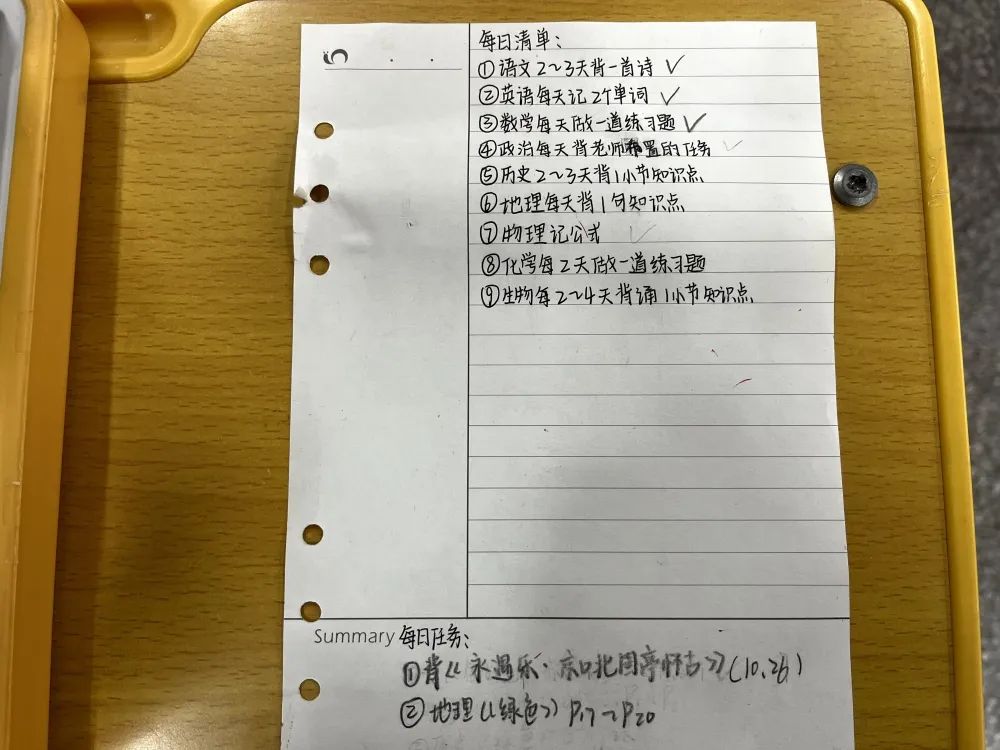 每日清单：
①语文2~3天背一首诗 ✓
②英语每天记2个单词 ✓
③数学每天做一道练习题 ✓
④政治每天背老师布置的任务 ✓
⑤历史2~3天背1小节知识点
⑥地理每天背1句知识点
⑦物理记公式 ✓
⑧化学每2天做一道练习题
⑨生物每2~4天背诵1小节知识点
Summary 每日任务：
①背《永遇乐·京口北固亭怀古》(10.26)
②地理《绿色》P17~P20